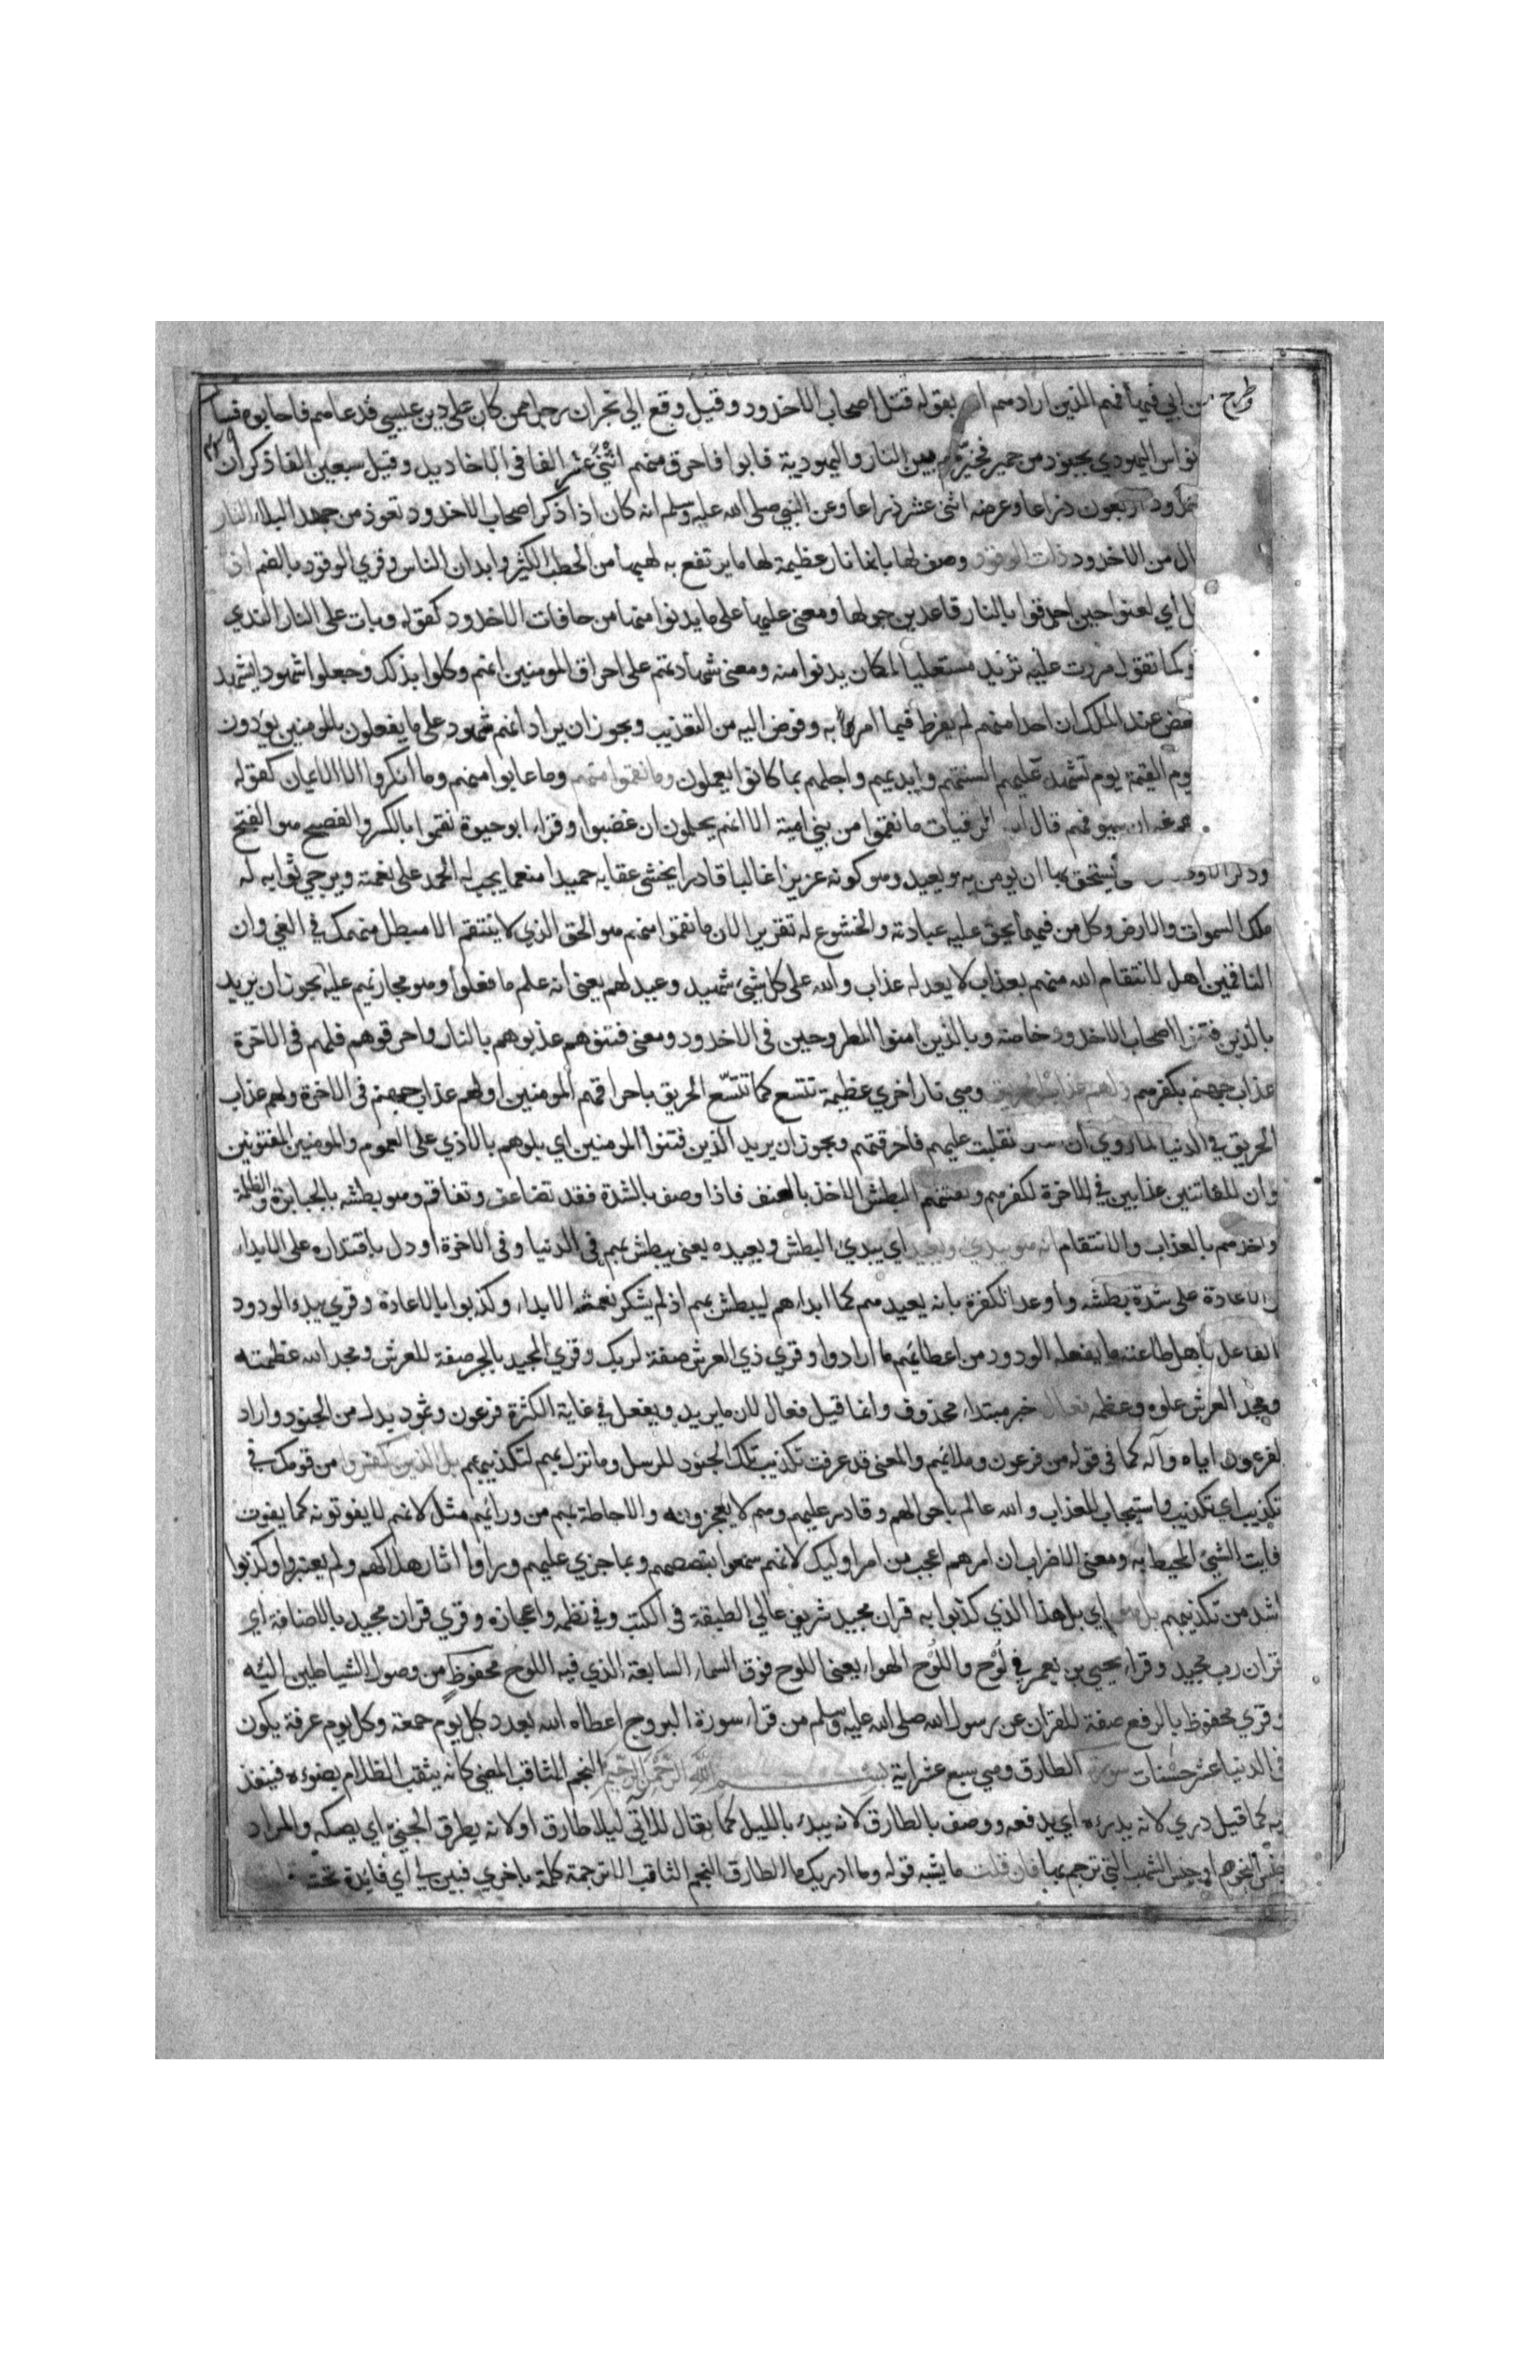 وطرح من ابي فيها فهم الذين اراد منهم الله بقوله قتل اصحاب الاخدود وقيل وقع الي نجران رجل ممن كان علي دين عيسي فدعاهم فاجابوه فسار
نواس اليهودي بجنود من حمير فخيّرهم بين النار واليهودية فابوا فاحرق منهم اثنى عشر الفا في الاخاديد وقيل سبعين الفا ذكر ان
اربعون ذراعا وعرضه اثنى عشر ذراعا وعن النبي صلى الله عليه وسلم انه كان اذا ذكر اصحاب الاخدود تعوذ من جهد البلاء النار
ال من الاخدود ذات الوقود وصف لها بانها نار عظيمة لها ما يرتفع به لهبها من الحطب الكثير وابدان الناس وقري الوقود بالضم اذ
اي لعنوا حين احرقوا بالنار قاعدين حولها ومعنى عليها على ما يدنوا منها من حافات الاخدود كقوله وبات على النار الندي
وكما تقول مررت عليه تريد مستعليا لمكان يدنوا منه ومعنى شهادتهم على احراق المومنين انهم وكلوا بذلك وجعلوا شهودا يشهد
عض عند الملك ان احدا منهم لم يفرط فيما امر به وفوض اليه من التعذيب ويجوز ان يراد انهم شهود على ما يفعلون بالمومنين يؤدون
وم القيمة يوم تشهد عليهم السنتهم وايديهم وارجلهم بما كانوا يعملون وما نقموا منهم وما عابوا منهم وما انكروا الا الايمان كقوله
ان سيوفهم قال ابن الرقيات ما نقموا من بني امية الا انهم يحلمون ان غضبوا وقراء ابو حيوة نقموا بالكسر والفصيح هو الفتح
يستحق بها ان يومن به ويعبد وهو كونه عزيزا غالبا قادرا يخشى عقابه حميدا منعما يجب له الحمد على نعمته ويرجي ثوابه له
ملك السموات والارض وكل من فيها يحق عليه عبادته والخشوع له تقريرا لان ما نقموا منهم هو الحق الذي لا ينقمه الا مبطل منهمك في الغي وان
الناقمين اهل لانتقام الله منهم بعذاب لا يعدله عذاب والله على كل شيئ شهيد وعيد لهم يعني انه علم ما فعلوا وهو مجازيهم عليه يجوز ان يريد
بالذين فتنوا اصحاب الاخدود خاصة وبالذين امنوا المطروحين في الاخدود ومعنى فتنوهم عذبوهم بالنار واحرقوهم فلهم في الاخرة
عذاب جهنم بكفرهم ولهم عذاب الحريق وهي نار اخري عظيمة تتسع كما تتسّع الحريق باحراقهم المومنين او لهم عذاب جهنم في الاخرة ولهم عذاب
الحريق في الدنيا لما روي ان انقلبت عليهم فاحرقتهم ويجوز ان يريد الذين فتنوا المومنين اي بلوهم بالاذي على العموم والمومنين المفتونين
وان للفاتنين عذابين في الاخرة لكفرهم وفتنتهم البطش الاخذ بالعنف فاذا وصف بالشدة فقد تضاعف وتفاقم وهو بطشه بالجبابرة والظلمة
واخذهم بالعذاب والانتقام انه هو يبدئ ويعيد اي يبدئ البطش ويعيده يعني يبطش بهم في الدنيا وفي الاخرة او دل باقتداره على الابداء
والاعادة على شدة بطشه واوعد الكفرة بانه يعيدهم كما ابداهم ليبطش بهم اذ لم يشكروا نعمة الابداء وكذبوا بالاعادة وقري يبدء الودود
الفاعل باهل طاعته ما يفعله الودود من اعطائهم ما ارادوا وقري ذي العرش صفة لربك وقري المجيد بالجر صفة للعرش ومجد الله عظمته
ومجد العرش علوه وعظمه فعال خبر مبتداء محذوف وانما قيل فعال لان ما يريد ويفعل في غاية الكثرة فرعون وثمود بدل من الجنود واراد
لفرعون اياه وآله كما في قوله من فرعون وملائهم والمعنى قد عرفت تكذيب تلك الجنود للرسل وما نزل بهم لتكذيبهم بل الذين كفروا من قومك في
تكذيب اي تكذيب واستيجاب للعذاب والله عالم باحوالهم وقادر عليهم وهم لا يعجزونه والاحاطة بهم من ورائهم مثل لانهم لا يفوتونه كما يفوت
فايت الشيئ المحيط به ومعنى الاضراب ان امرهم اعجب من امر اوليك لانهم سمعوا بقصصهم وبما جري عليهم وراوا اثار هلاكهم ولم يعتبروا وكذبوا
اشد من تكذيبهم بل هو اي بل هذا الذي كذبوا به قران مجيد شريف عالي الطبقة في الكتب وفي نظمه واعجازه وقري قران مجيد بالاضافة اي
قران رب مجيد وقراء يحيي بن يعمر في لُوح واللُوح الهواء يعني اللوح فوق السماء السابعة الذي فيه اللوح محفوظ من وصول الشياطين اليه
وقري محفوظ بالرفع صفة للقران عن رسول الله صلى الله عليه وسلم من قراء سورة البروج اعطاه الله بعدد كل يوم جمعة وكل يوم عرفة يكون
في الدنيا عشر حسنات سورة الطارق وهي سبع عشر اية بسم الله الرحمن الرحيم النجم الثاقب المضي كانه يثقب الظلام بضوئه فينفذ
فيه كما قيل دري لانه يدرءه اي يدفعه ووصف بالطارق لانه يبدء بالليل كما يقال للاتي ليلا طارق او لانه يطرق الجنيّ اي يصكه والمراد
جنس النجوم او جنس الشهب التي ترجم بها فان قلت ما يشبه قوله وما ادريك ما الطارق النجم الثاقب الا ترجمة كلمة باخري فبين لي اي فايدة تحته قلت